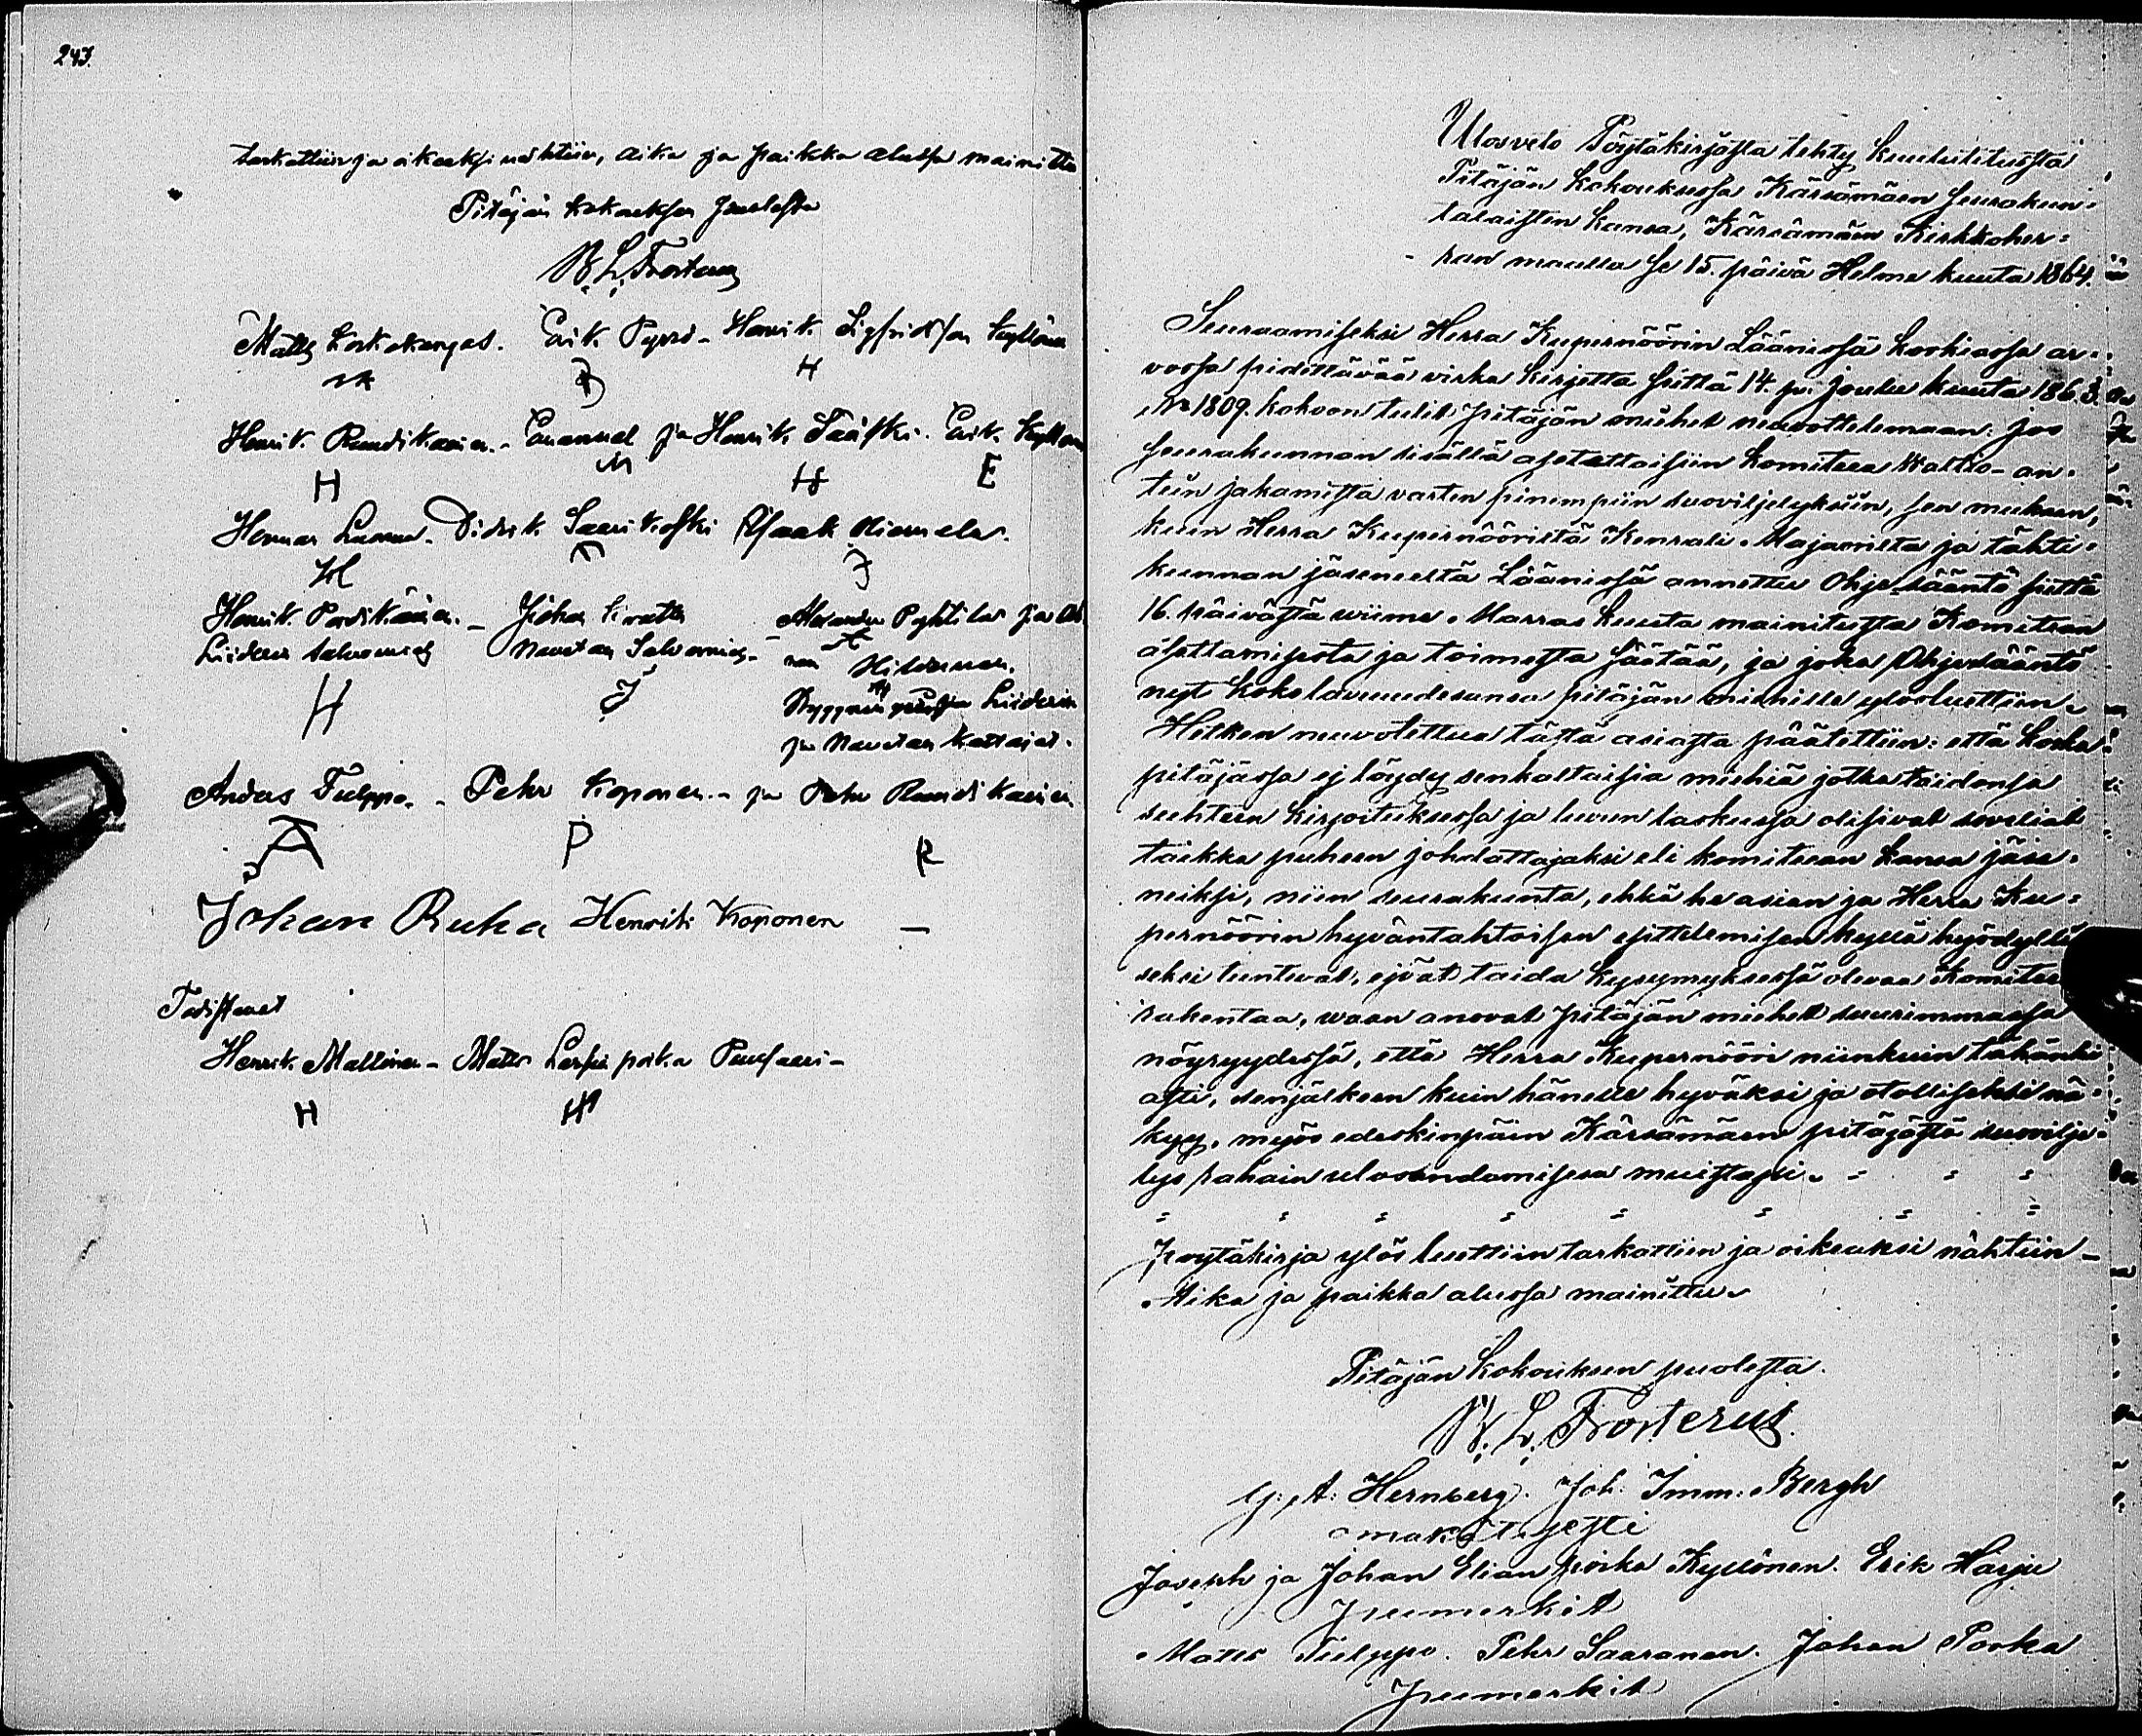 243.
tarkattiin ja oikeaksi nähtiin, Aika ja paikka alussa mainittu
Pitäjän kokouksen puolesta
W. L. Frosterus
Matts Korkakangas. Erik Pyrrö - Henrik Sigfridsson Kyllönen
H
Henrik Ruudikainen. - Emanuel ja Henrik Sääski. Erik Kyllönen
H M H E
Herman Luoma. Didrik Saarikoski Isaak Niemela.
J
Henrik Pardikäinen. - Johan Kiratti - Alexander Pyhtilä ja
Liiderin talvomies Navetan Talvomies - Hilvanen.
H J Liiderin
ja Navetan Kattajat.
Andas Tulppo. - Pehr Koponen. - ja Pehr Ruudikainen
A P R
Johan Ruha Henrik Koponen -
Todistavat
Henrik Mallinen - Matts Lassin poika Puusaari -
H
Ulosveto Pöytäkirjasta tehty kuulutitussa
Pitäjän kokouksessa Kärsämäen seurakun-
talaisten kanssa, Kärsämäen Kirkkoher-
ran maalla se 15. päivä Helme kuuta 1864.
Seuraamiseksi Herra Kupernöörin Läänissä korkiassa ar-
vossa pidettävää virka kirjetta siittä 14. p. joulu kuuta 1863.
No 1809. kokoon tulit pitäjän miehet neuvottelemaan: jos
seurakunnan sisällä asetettaisiin komitea Waltio-an-
tein jakamista varten pinempiin suoviljelyksiin, sen mukaan,
kuin Herra Kupernööriltä Kenrali Majorilta ja tähti-
kunnan jäseneeltä Läänissä annettu Ohjesääntö siittä
16. päivästä wiime Marras kuuta mainitusta Komitean
asettamisesta ja toimesta säätää, ja joka Ohjesääntö
nyt koko lavuudesansa pitäjän miehille ylösluettiin.
Hetken neuvoteltua tästä asiasta päätettiin: että koska
pitäjässä ej löydy senkaltaisia miehiä jotka taidonsa
suhteen kirjoituksessa ja luvun laskussa olisivat soveliat
taikka puheen johdattajaksi eli komitean kansa jäse-
neiksi, niin seurakunta, ehkä he asian ja Herra Ku-
pernöörin hyväntahtoisen esittelemisen kyllä hyödylli-
seksi tuntevat, ejvät taida kysymyksessä olevaa Komitea
rakentaa, waan anovat pitäjän miehet suurimmassa
nöyryydessä, että Herra Kupernööri niinkuin tähänki
asti, senjälkeen kuin hänelle hyväksi ja otolliseksi nä-
kyy, myös edeskinpäin Kärsämäen pitäjästä suovilje-
lys rahain ulosandamisessa muistaisi. - - -
- - - - - - - -
Pöytäkirja ylös luettiin tarkattiin ja oikeaksi nähtiin -
Aika ja paikka alussa mainittu.
Pitäjän kokouksen puolesta.
W. L. Frosterus.
G. A. Hernberg. Joh. Imm. Bergh
Joseph ja Johan Elian poika Kyllönen. Erik Harju
puumerkit
Matts Tulppo. Pehr Saaranen. Johan Porka
puumerkit